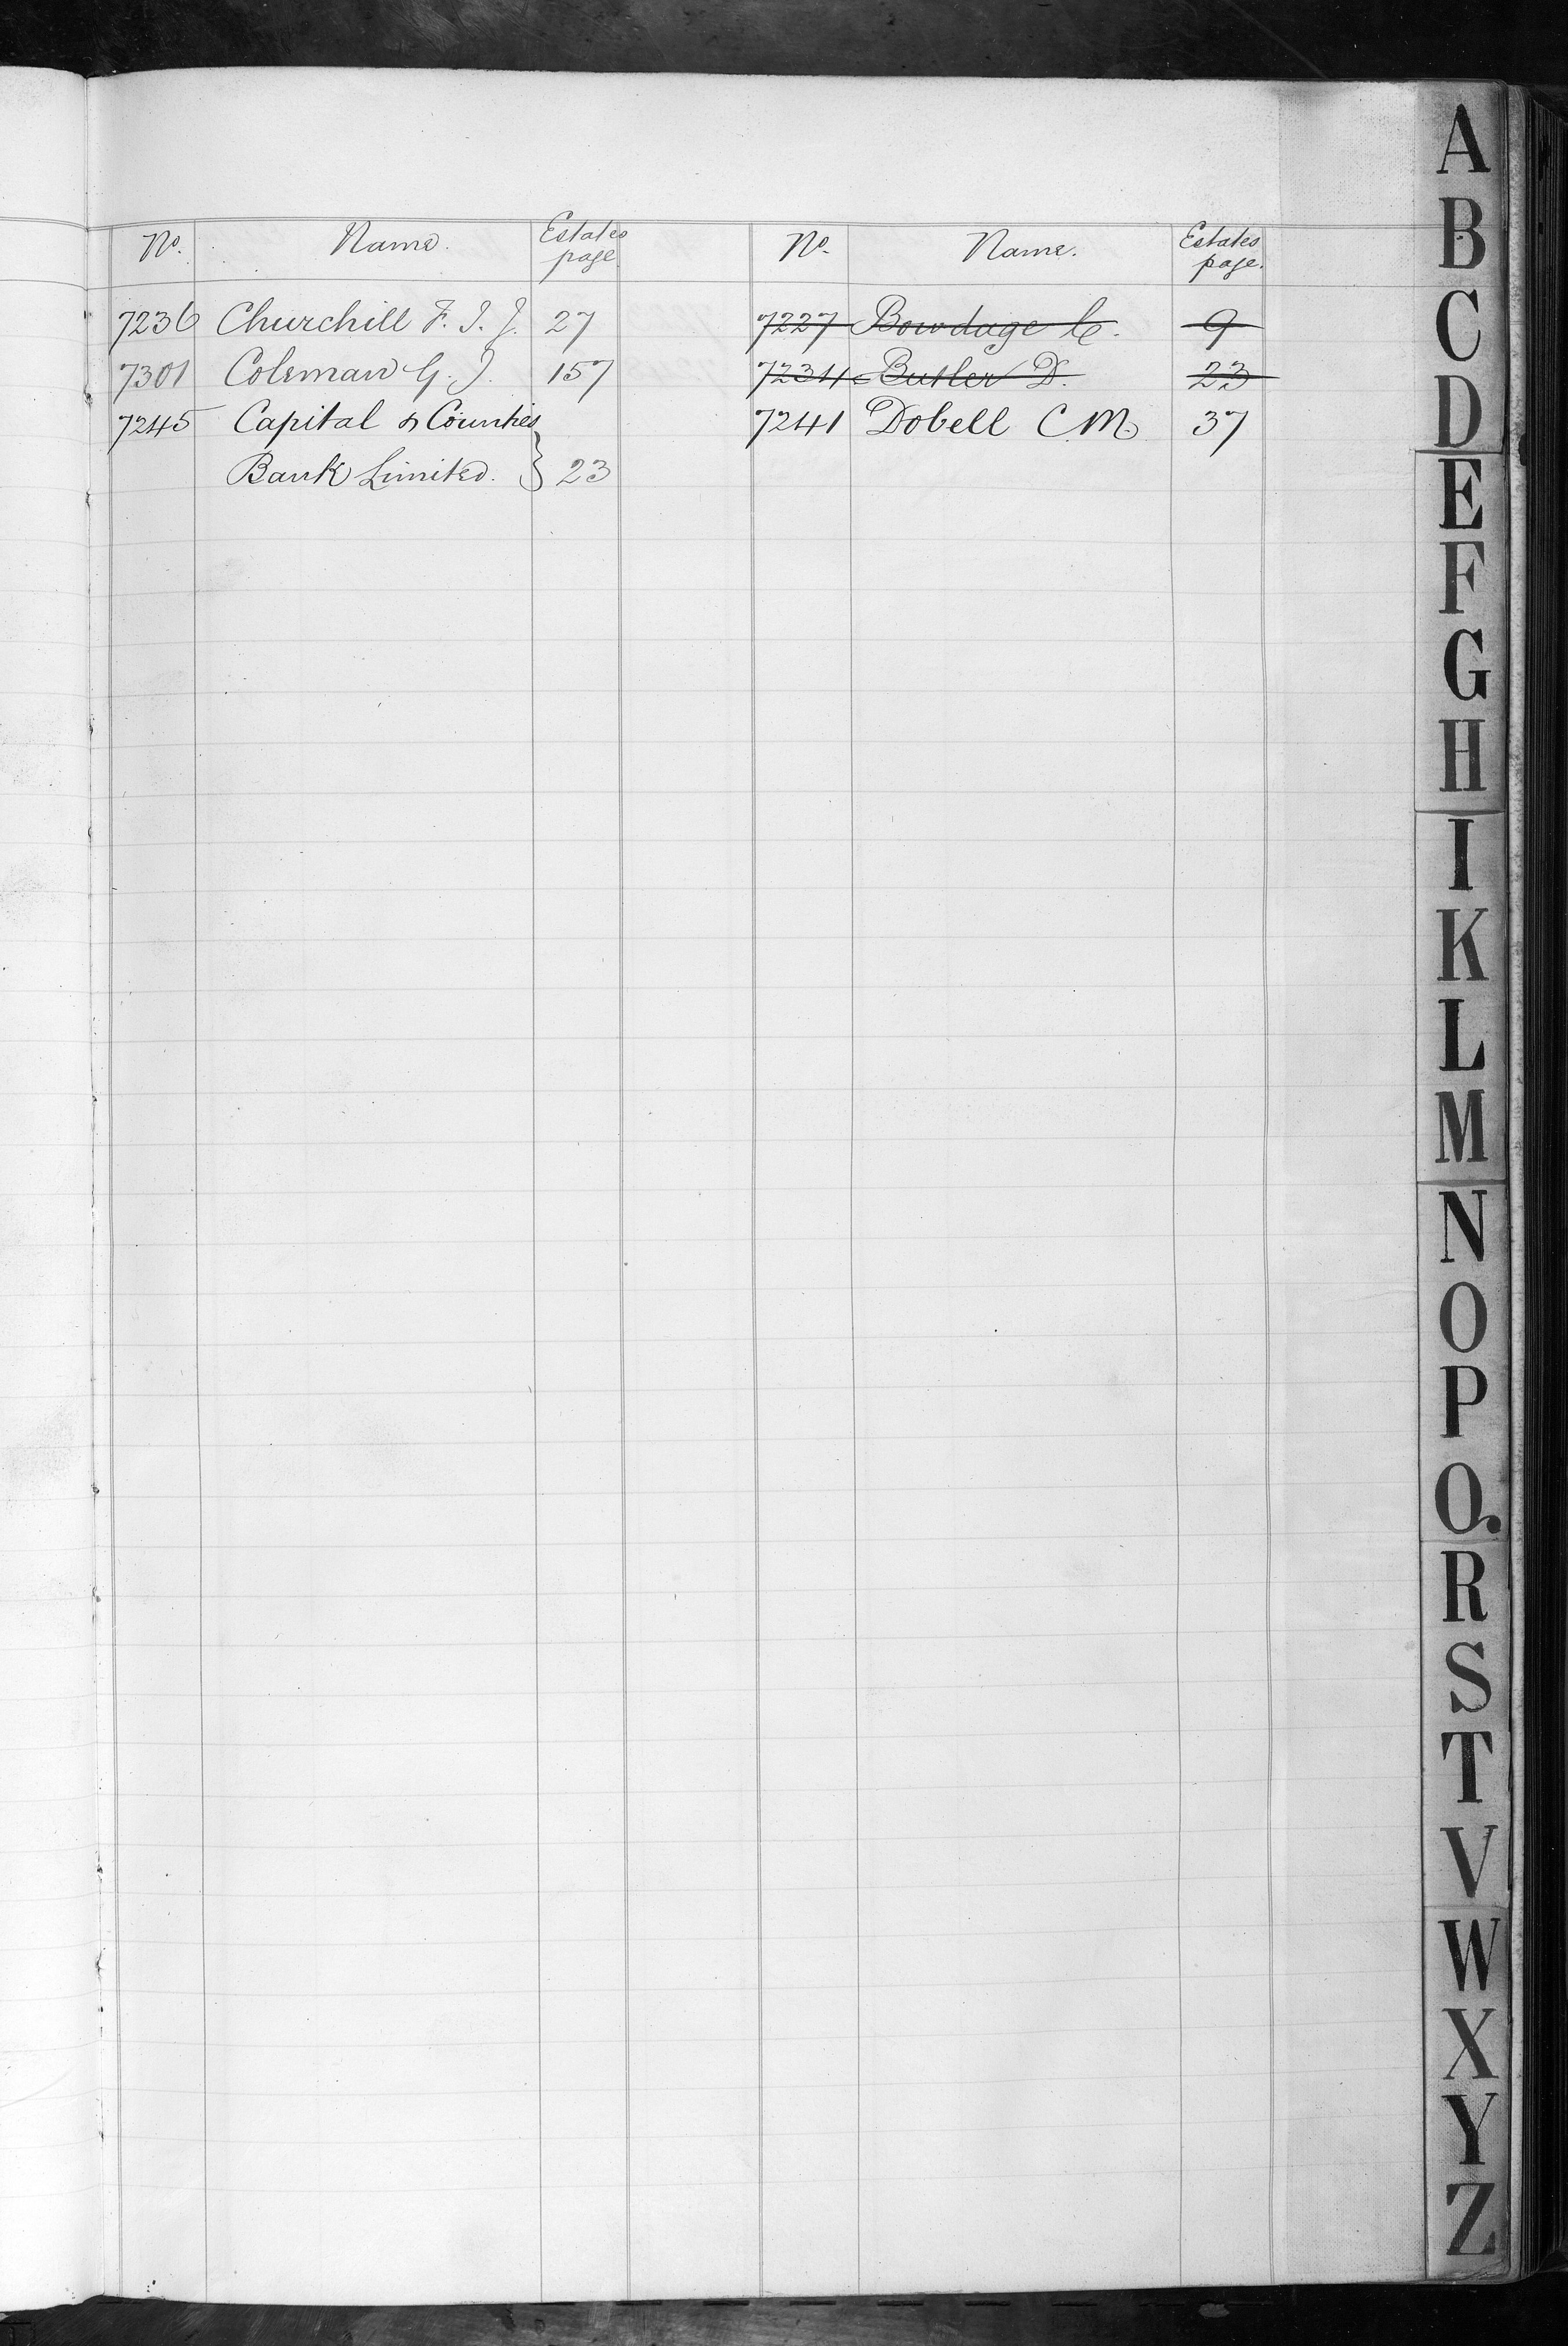 No. Name. Estates page.
7236 Churchill F. J. J. 27
7301 Coleman G. J. 157
7245 Capital & Counties
Bank Limited. } 23
No. Name. Estates page.
7227 Bowdage C. 9
7234 Butler D. 23
7241 Dobell C. M. 37
A
B
C
D
E
F
G
H
I
K
L
M
N
O
P
Q.
R
S
T
V
W
X
Y
Z